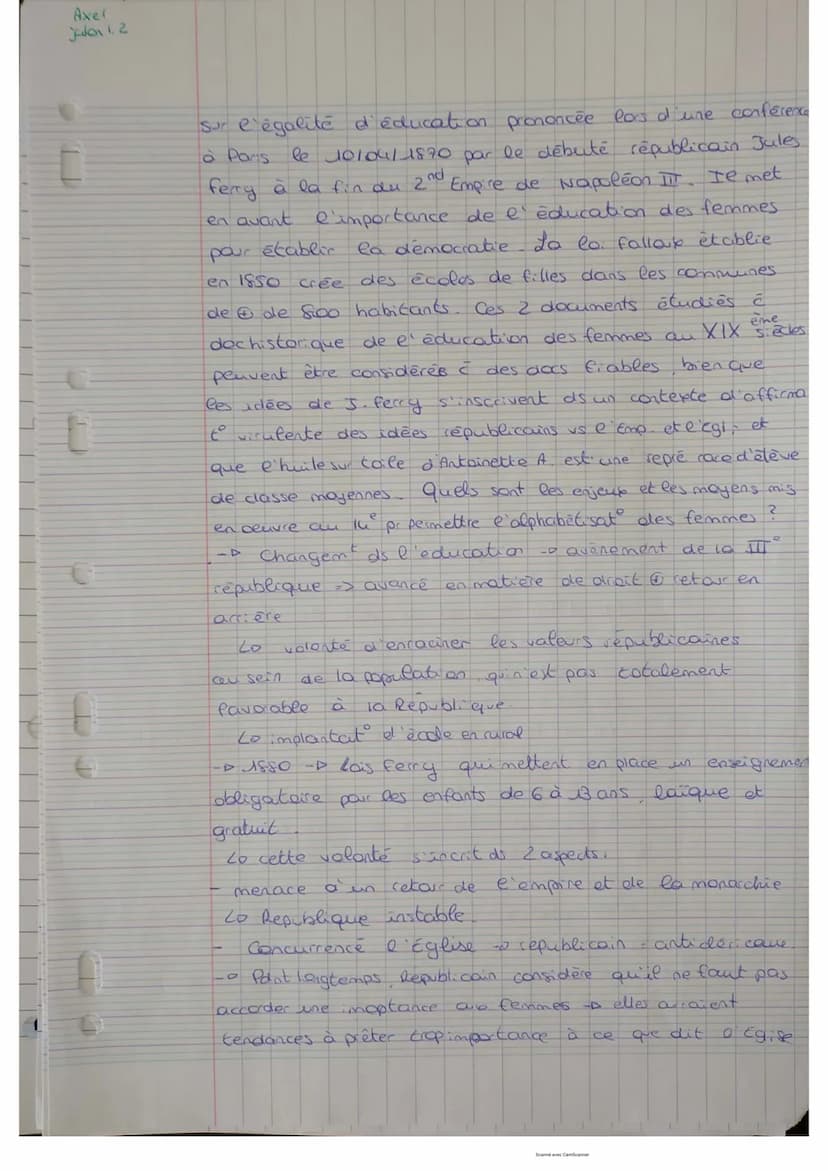 Axel
sur l'égalité d'éducation prononcée lors d'une conférence
à Paris le 10/04/1870 par le débuté républicain Jules
Ferry à la fin du 2nd Empire de Napoléon III. Il met
en avant l'importance de l'éducation des femmes
pour établir la démocratie. La loi Falloux établie
en 1850 crée des écoles de filles dans les communes
de ⊕ de 800 habitants. Ces 2 documents étudiés c̄
doc historique de l'éducation des femmes au XIX ème siècles
peuvent être considérés c̄ des docs fiables, bien que
les idées de J. Ferry s'inscrivent ds un contexte d'affirma
t° virulente des idées républicains vs l'Emp. et l'Egl; et
que l'huile sur toile d'Antoinette A. est une repré rare d'élève
de classe moyennes. Quels sont les enjeux et les moyens mis
en oeuvre au pr permettre l'alphabétisat° des femmes ?
-> Changemt ds l'education -> avènement de la III°
république => avancé en matière de droit ⊕ retour en
arrière
↳ volonté d'enraciner les valeurs républicaines
au sein de la population, qui n'est pas totalement
favorable à la République
↳ implantat° d'école en rural
-> 1880 -> lois Ferry qui mettent en place un enseignemen
obligatoire par les enfants de 6 à 13 ans, laïque et
gratuit.
↳ cette volonté s'incrit ds 2 aspects.
- menace d'un retour de l'empire et de la monarchie
↳ République instable.
- Concurrencé l'Église -> républicain = anticléricaux
-> Pdnt longtemps, Républicain considère qu'il ne faut pas
accorder une imoptance aux femmes -> elles auraient
tendances à prêter trop importance à ce que dit l'Eglise
Scanné avec CamScanner